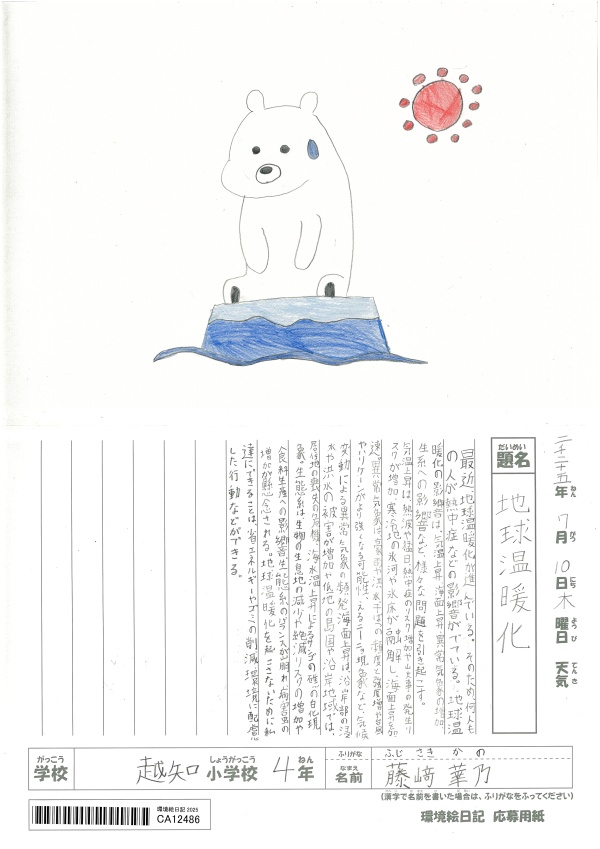 二千二十五年 7月 10日 木曜日 天気
ねん がつ にち ようび てんき
だいめい
題名 地球温暖化
最近地球温暖化が進んでいる。そのため何人も
の人が熱中症などの影響がでている。地球温
暖化の影響は、気温上昇、海面上昇、異常気象の増加
生系への影響など、様々な問題を引き起こす。
気温上昇は、熱波や猛日熱中症のリスク増加や山火事の発生リ
スクが増加、寒冷地の氷河や氷床が融解し、海面上昇を加
速。異常気象は豪雨や洪水干ばつの頻度と強度増や台風
やハリケーンがより強くなる可能性、エルニーニョ現象など、気候
変動による異常気象の頻発海面上昇は、沿岸部の浸
水や洪水の被害が増加や低地の島国や沿岸地域では、
居住地の喪失の危機、海水温上昇によるサンゴの礁の白化現
象。生態系は生物の生息地の減少や絶滅リスクの増加や
食料生産への影響生態系のバランスが崩れ、病害虫の
増加が懸念される。地球温暖化を起こさないために私
達にできることは、省エネルギーやゴミの削減環境に配慮
した行動などができる。
がっこう しょうがっこう ねん
学校 越知小学校 4年
ふりがな ふじさき かの
なまえ
名前 藤﨑 華乃
(漢字で名前を書いた場合は、ふりがなをふってください)
環境絵日記 2025
CA12486
環境絵日記 応募用紙